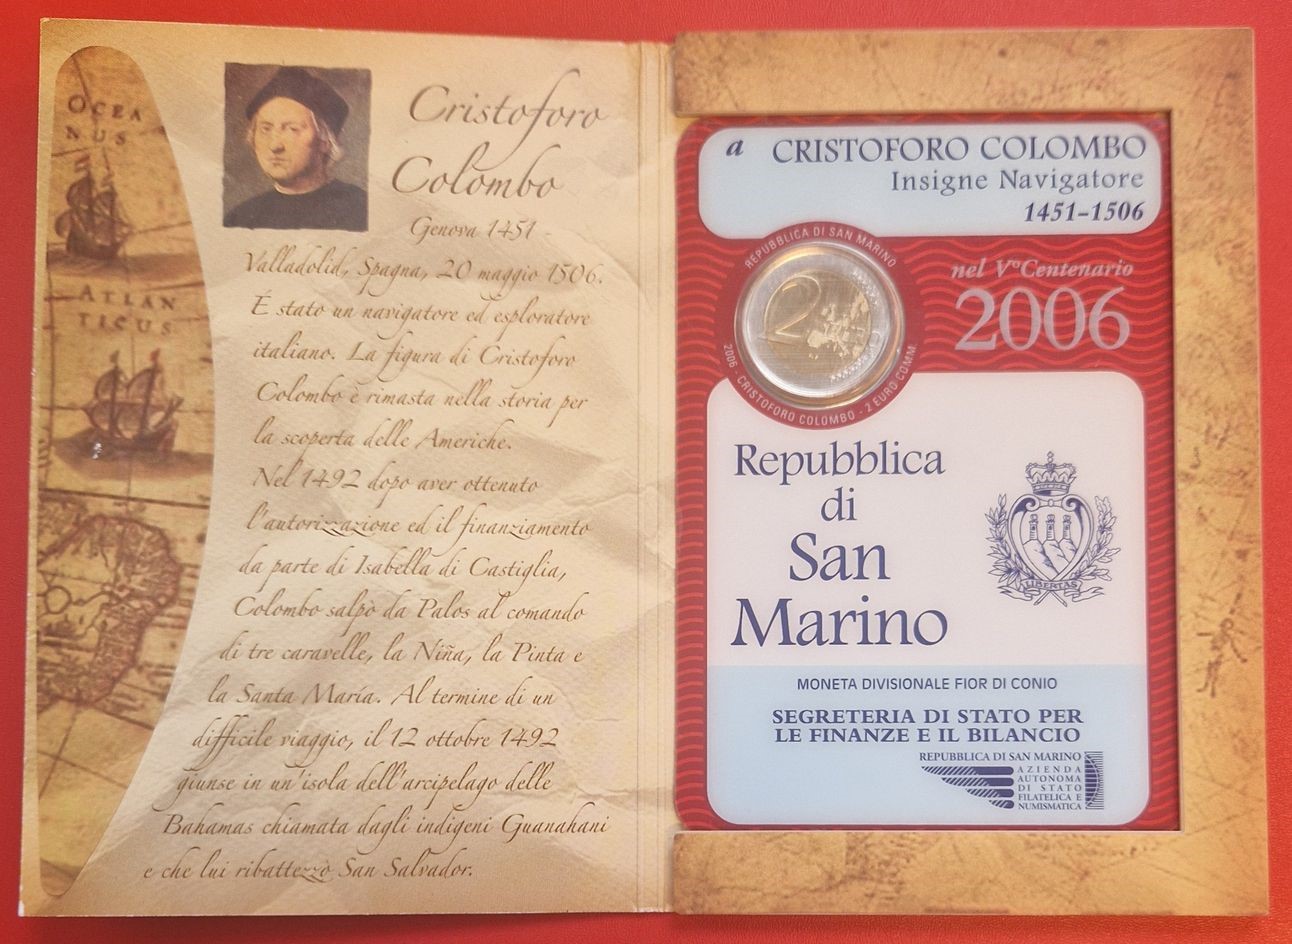 OCEA
NUS
ATLAN
TICUS
Cristoforo
Colombo
Genova 1451 -
Valladolid, Spagna, 20 maggio 1506.
È stato un navigatore ed esploratore
italiano. La figura di Cristoforo
Colombo è rimasta nella storia per
la scoperta delle Americhe.
Nel 1492 dopo aver ottenuto
l'autorizzazione ed il finanziamento
da parte di Isabella di Castiglia,
Colombo salpò da Palos al comando
di tre caravelle, la Niña, la Pinta e
la Santa María. Al termine di un
difficile viaggio, il 12 ottobre 1492
giunse in un'isola dell'arcipelago delle
Bahamas chiamata dagli indigeni Guanahani
e che lui ribattezzò San Salvador.
a CRISTOFORO COLOMBO
Insigne Navigatore
1451-1506
REPUBBLICA DI SAN MARINO
2006 - CRISTOFORO COLOMBO - 2 EURO COMM.
2 EURO
nel V° Centenario
2006
Repubblica
di
San
Marino
LIBERTAS
MONETA DIVISIONALE FIOR DI CONIO
SEGRETERIA DI STATO PER
LE FINANZE E IL BILANCIO
REPUBBLICA DI SAN MARINO
AZIENDA
AUTONOMA
DI STATO
FILATELICA E
NUMISMATICA